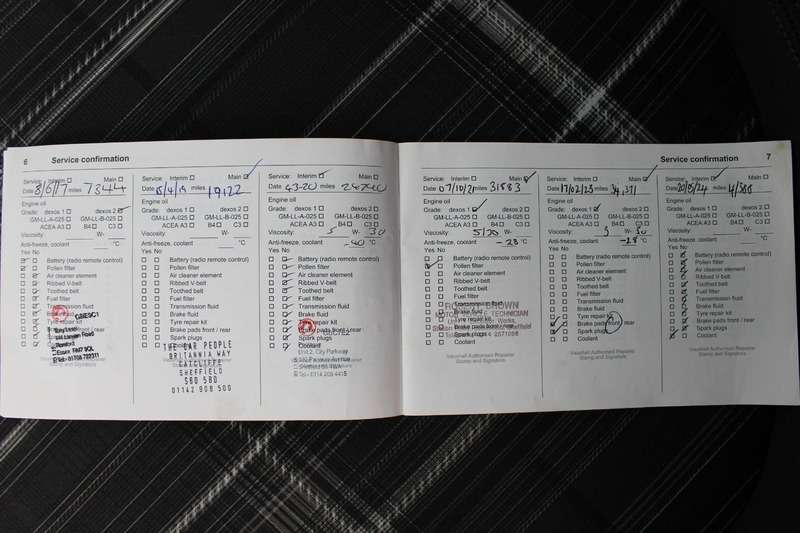 6 Service confirmation
Service: Interim Main
Date 8/6/17 miles 7344
Engine oil
Grade: dexos 1 dexos 2
GM-LL-A-025 GM-LL-B-025
ACEA A3 B4 C3
Viscosity: W-
Anti-freeze, coolant °C
Yes No
Battery (radio remote control)
Pollen filter
Air cleaner element
Ribbed V-belt
Toothed belt
Fuel filter
Transmission fluid
Brake fluid
Tyre repair kit
Brake pads front / rear
Spark plugs
Coolant
Romford
Essex
Service: Interim Main
Date 15/4/19 miles 19122
Engine oil
Grade: dexos 1 dexos 2
GM-LL-A-025 GM-LL-B-025
ACEA A3 B4 C3
Viscosity: W-
Anti-freeze, coolant °C
Yes No
Battery (radio remote control)
Pollen filter
Air cleaner element
Ribbed V-belt
Toothed belt
Fuel filter
Transmission fluid
Brake fluid
Tyre repair kit
Brake pads front / rear
Spark plugs
Coolant
THE CAR PEOPLE
BRITANNIA WAY
CATCLIFFE
SHEFFIELD
S60 5BD
01142 908 500
Service: Interim Main
Date 4-3-20 miles
Engine oil
Grade: dexos 1 dexos 2
GM-LL-A-025 GM-LL-B-025
ACEA A3 B4 C3
Viscosity: 5 W- 30
Anti-freeze, coolant -40 °C
Yes No
Battery (radio remote control)
Pollen filter
Air cleaner element
Ribbed V-belt
Toothed belt
Fuel filter
Transmission fluid
Brake fluid
Tyre repair kit
Brake pads front / rear
Spark plugs
Coolant
Unit 2, City Parkway
Service confirmation 7
Service: Interim Main
Date 07/10/21 miles 31883
Engine oil
Grade: dexos 1 dexos 2
GM-LL-A-025 GM-LL-B-025
ACEA A3 B4 C3
Viscosity: 5/30 W-
Anti-freeze, coolant -28 °C
Yes No
Battery (radio remote control)
Pollen filter
Air cleaner element
Ribbed V-belt
Toothed belt
Fuel filter
Transmission fluid
Brake fluid
Tyre repair kit
Brake pads front / rear
Spark plugs
Coolant
Vauxhall Authorised Repairer
Stamp and Signature
Service: Interim Main
Date 17/02/23 miles 34,371
Engine oil
Grade: dexos 1 dexos 2
GM-LL-A-025 GM-LL-B-025
ACEA A3 B4 C3
Viscosity: 5 W- 30
Anti-freeze, coolant -28 °C
Yes No
Battery (radio remote control)
Pollen filter
Air cleaner element
Ribbed V-belt
Toothed belt
Fuel filter
Transmission fluid
Brake fluid
Tyre repair kit
Brake pads front / rear
Spark plugs
Coolant
Vauxhall Authorised Repairer
Stamp and Signature
Service: Interim Main
Date 20/05/24 miles
Engine oil
Grade: dexos 1 dexos 2
GM-LL-A-025 GM-LL-B-025
ACEA A3 B4 C3
Viscosity: W-
Anti-freeze, coolant °C
Yes No
Battery (radio remote control)
Pollen filter
Air cleaner element
Ribbed V-belt
Toothed belt
Fuel filter
Transmission fluid
Brake fluid
Tyre repair kit
Brake pads front / rear
Spark plugs
Coolant
Vauxhall Authorised Repairer
Stamp and Signature